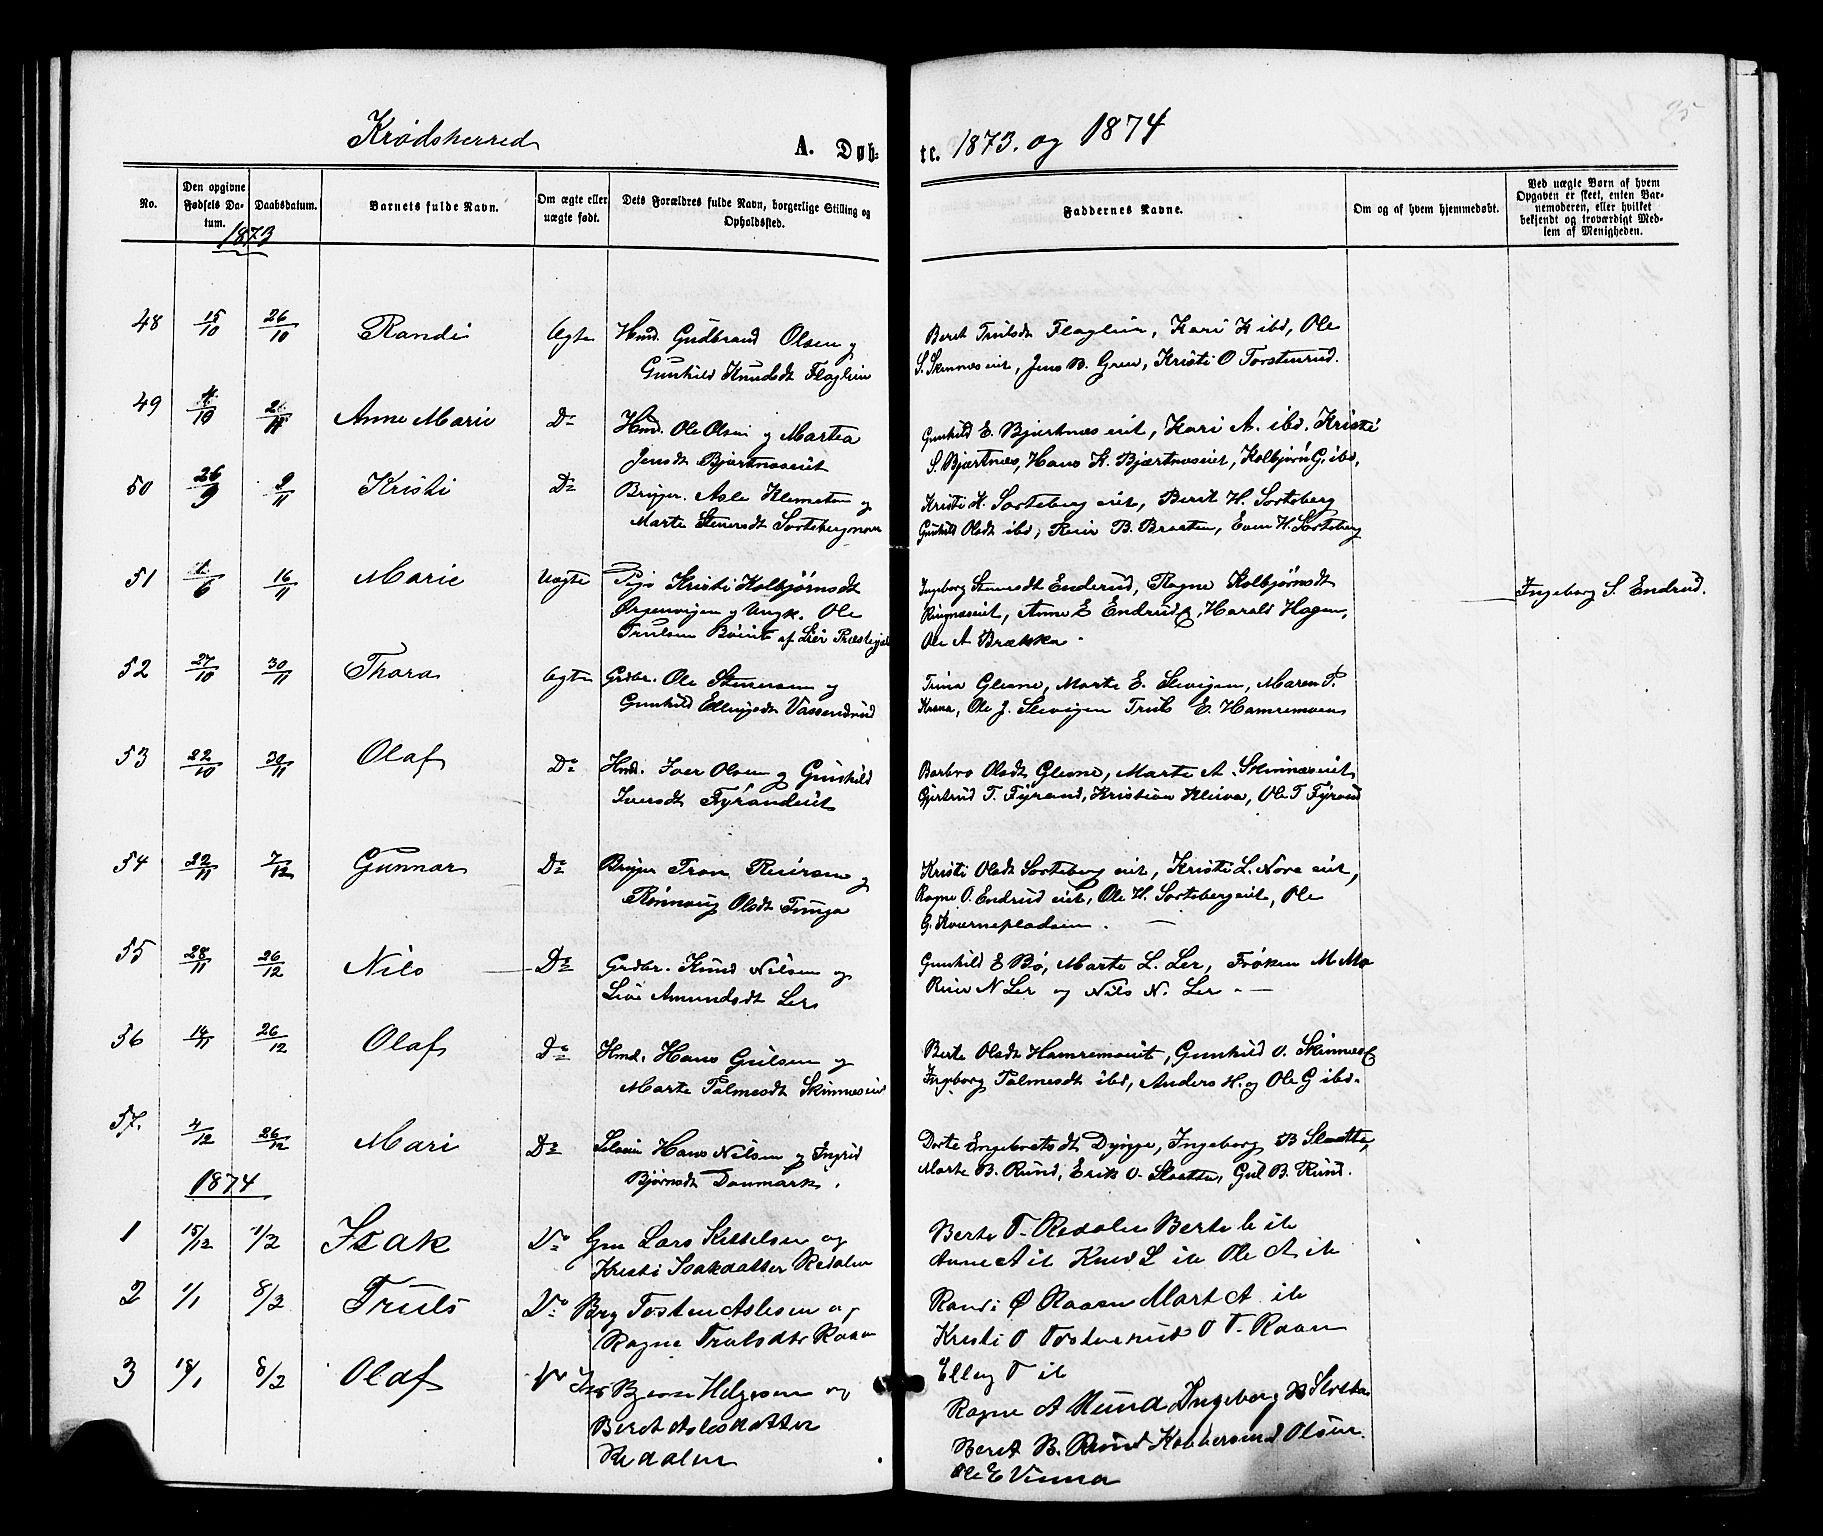 Krødsherred
A. Døb-
te. 1873. og 1874
No.
Den opgivne Fødsels Da-tum.
Daabsdatum.
Barnets fulde Navn.
Om ægte eller uægte født.
Dets Forældres fulde Navn, borgerlige Stilling og Opholdssted.
Faddernes Navne.
Om og af hvem hjemmedøbt.
Ved uægte Børn af hvem Opgaven er skeet, enten Bar-nemoderen, eller hvilket bekjendt og troværdigt Med-lem af Menigheden.
1873
48 15/10 26/10 Randi Ægte Hmd. Gudbrand Olsen og
Gunhild Knudsdt Flaglien
Berit Trulsdt Flaglien, Kari K ibd, Ole
S. Skinnes eiet, Jens B. Gren, Kristi O Torstenrud.
49 Anne Marie Do Hmd. Ole Olsen og Martea
Jensdt Bjertneseiet
Gunhild E. Bjertnes eiet, Kari A. ibd. Kristi
S. Bjertnes, Hans K. Bjærtneseiet, Kolbjørn G. ibd.
50 26/9 9/11 Kristi Do Brugger. Asle Klemetsen og
Marte Stenersdt Sorteberg
Kristi H. Sorteberg eiet, Berit H. Sorteberg
Gunhild Olsdt ibd, Reier B. Braaten, Even H. Sorteberg
51 16/11 Marie Uægte Pige Kristi Kolbjørnsdt
og Ungk. Ole
Trulsen af Lier Præstegjeld
Ingeborg Stenersdt Enderud, Ragne Kolbjørnsdt
Ringneseiet, Anne E Endrude, Harald Hagen,
Ole A Brækka.
Ingeborg S. Endrud.
52 27/10 30/11 Thora Ægte Grdbr. Ole Stenersen og
Gunhild Ellingsdt Vassendrud
Trina Glesne, Marte E. Slevigen, Maren P.
Ole J. Slevigen Truls E. Hamremoen
53 22/10 30/11 Olaf Do Hmd. Iver Olsen og Gunhild
Iversdt Fyrandeiet
Barbro Olsdt Glesne, Marte A. Skinneseiet
Gjertrud T. Fyrand, Kristian Kleiva, Ole T Fyrand
54 22/11 7/12 Gunnar Do Brugger Tron Reiersen og
Rønnaug Olsdt Tunga
Kristi Olsdt Sorteberg eiet, Kristi L. Nore eiet,
Ragne O. Endrud eiet, Ole H. Sortebergeiet, Ole
G. Kvernepladsen.
55 28/11 26/12 Nils Do Grdbr. Knud Nilsen og
Live Amundsdt Ler
Gunhild E Bø, Marte L. Ler, Frøken M Mo
Reier N Ler og Nils N. Ler.
56 14/11 26/12 Olaf Do Hmd. Hans Gulsen og
Marte Palmesdt Skinneseiet
Berte Olsdt Hamremoeiet, Gunhild O. Skinnes
Ingeborg Palmesdt ibd, Anders H. og Ole G ibd.
57. 4/12 26/12 Mari Do Selveier Hans Nilsen og Ingrid
Bjørnsdt Danmark.
Dorte Engebretsdt Dynge, Ingeborg B Slaatta,
Marte B. Rund, Erik O. Slaatta, Gul B. Rund.
1874
1 15/12 1/2 Isak Do Gm Lars Kittelsen og
Kristi Isakdatter Redalen
Berte T. Redalen Berte L ib
Anne A ib Knud L ib Ole A ib
2 1/1 8/2 Truls Do Brg Tosten Aslesen og
Ragne Trulsdtr Raaen
Randi Ø Raaen Mart A ib
Kristi O Tostenrud O T. Raaen
Elling T ib
3 18/1 8/2 Olaf Do Bjørn Helgesen og
Beret Aslesdatter
Redalen
Ragne A Rund Ingeborg B Slotta
Beret B. Rund Olsen.
Ole E Vinna